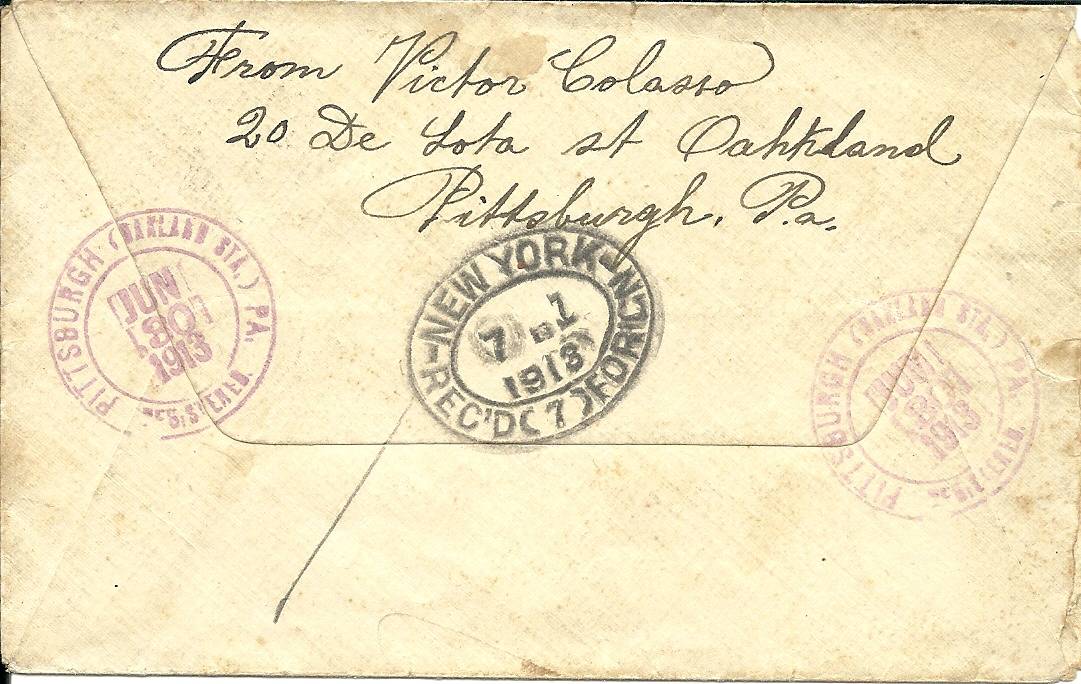 From Victor Colasso
20 De Lota st Oahkland
Pittsburgh, Pa.
PITTSBURGH (OAKLAND STA.) PA.
JUN
30
1913
REGISTERED.
-NEW YORK-N.J.
7 - 1
1913
REC'D (7) FOREIGN
PITTSBURGH (OAKLAND STA.) PA.
JUN
30
1913
REGISTERED.